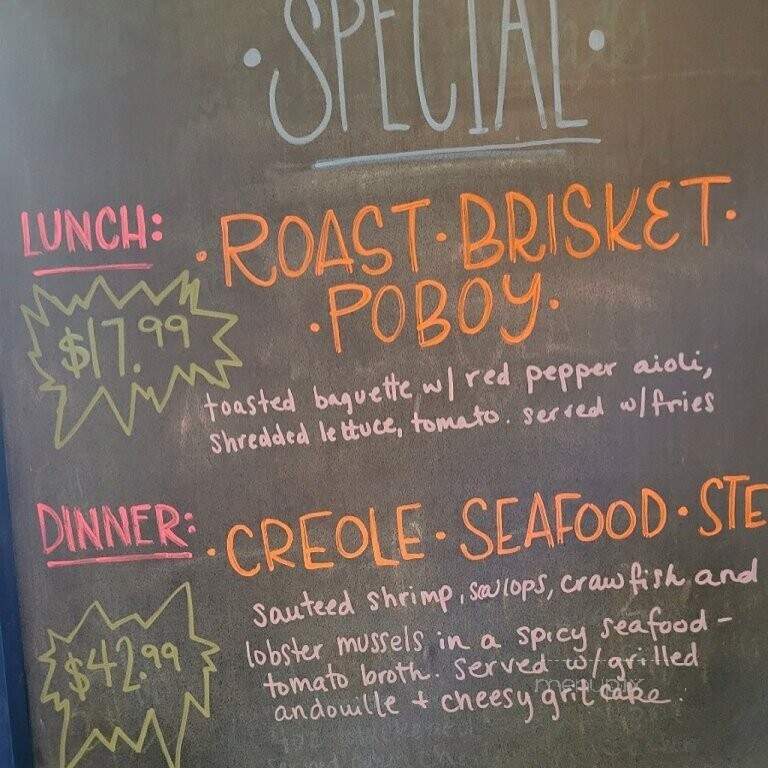 • SPECIAL •
LUNCH: • ROAST • BRISKET •
• POBOY •
$17.99
toasted baguette w/ red pepper aioli,
shredded lettuce, tomato. served w/fries
DINNER: • CREOLE • SEAFOOD • STE
$42.99
sauteed shrimp, scallops, crawfish and
lobster mussels in a spicy seafood -
tomato broth. served w/grilled
andouille + cheesy grit cake.
menupix